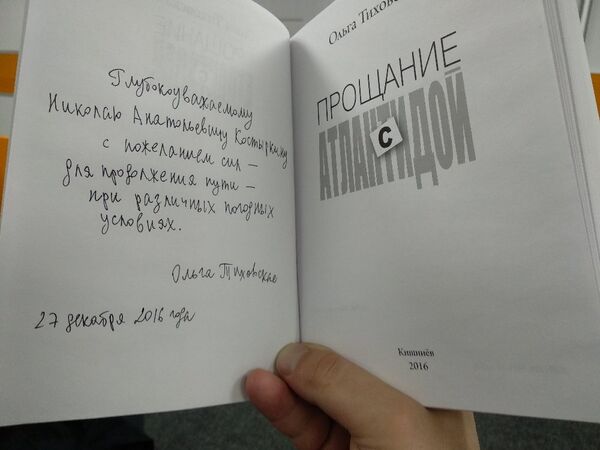 Глубокоуважаемому
Николаю Анатольевичу Костыркину
с пожеланием сил —
для продолжения пути —
при различных погодных
условиях.
Ольга Тиховская
27 декабря 2016 года
Ольга Тихов
ПРОЩАНИЕ
с
АТЛАНТИДОЙ
Кишинёв
2016